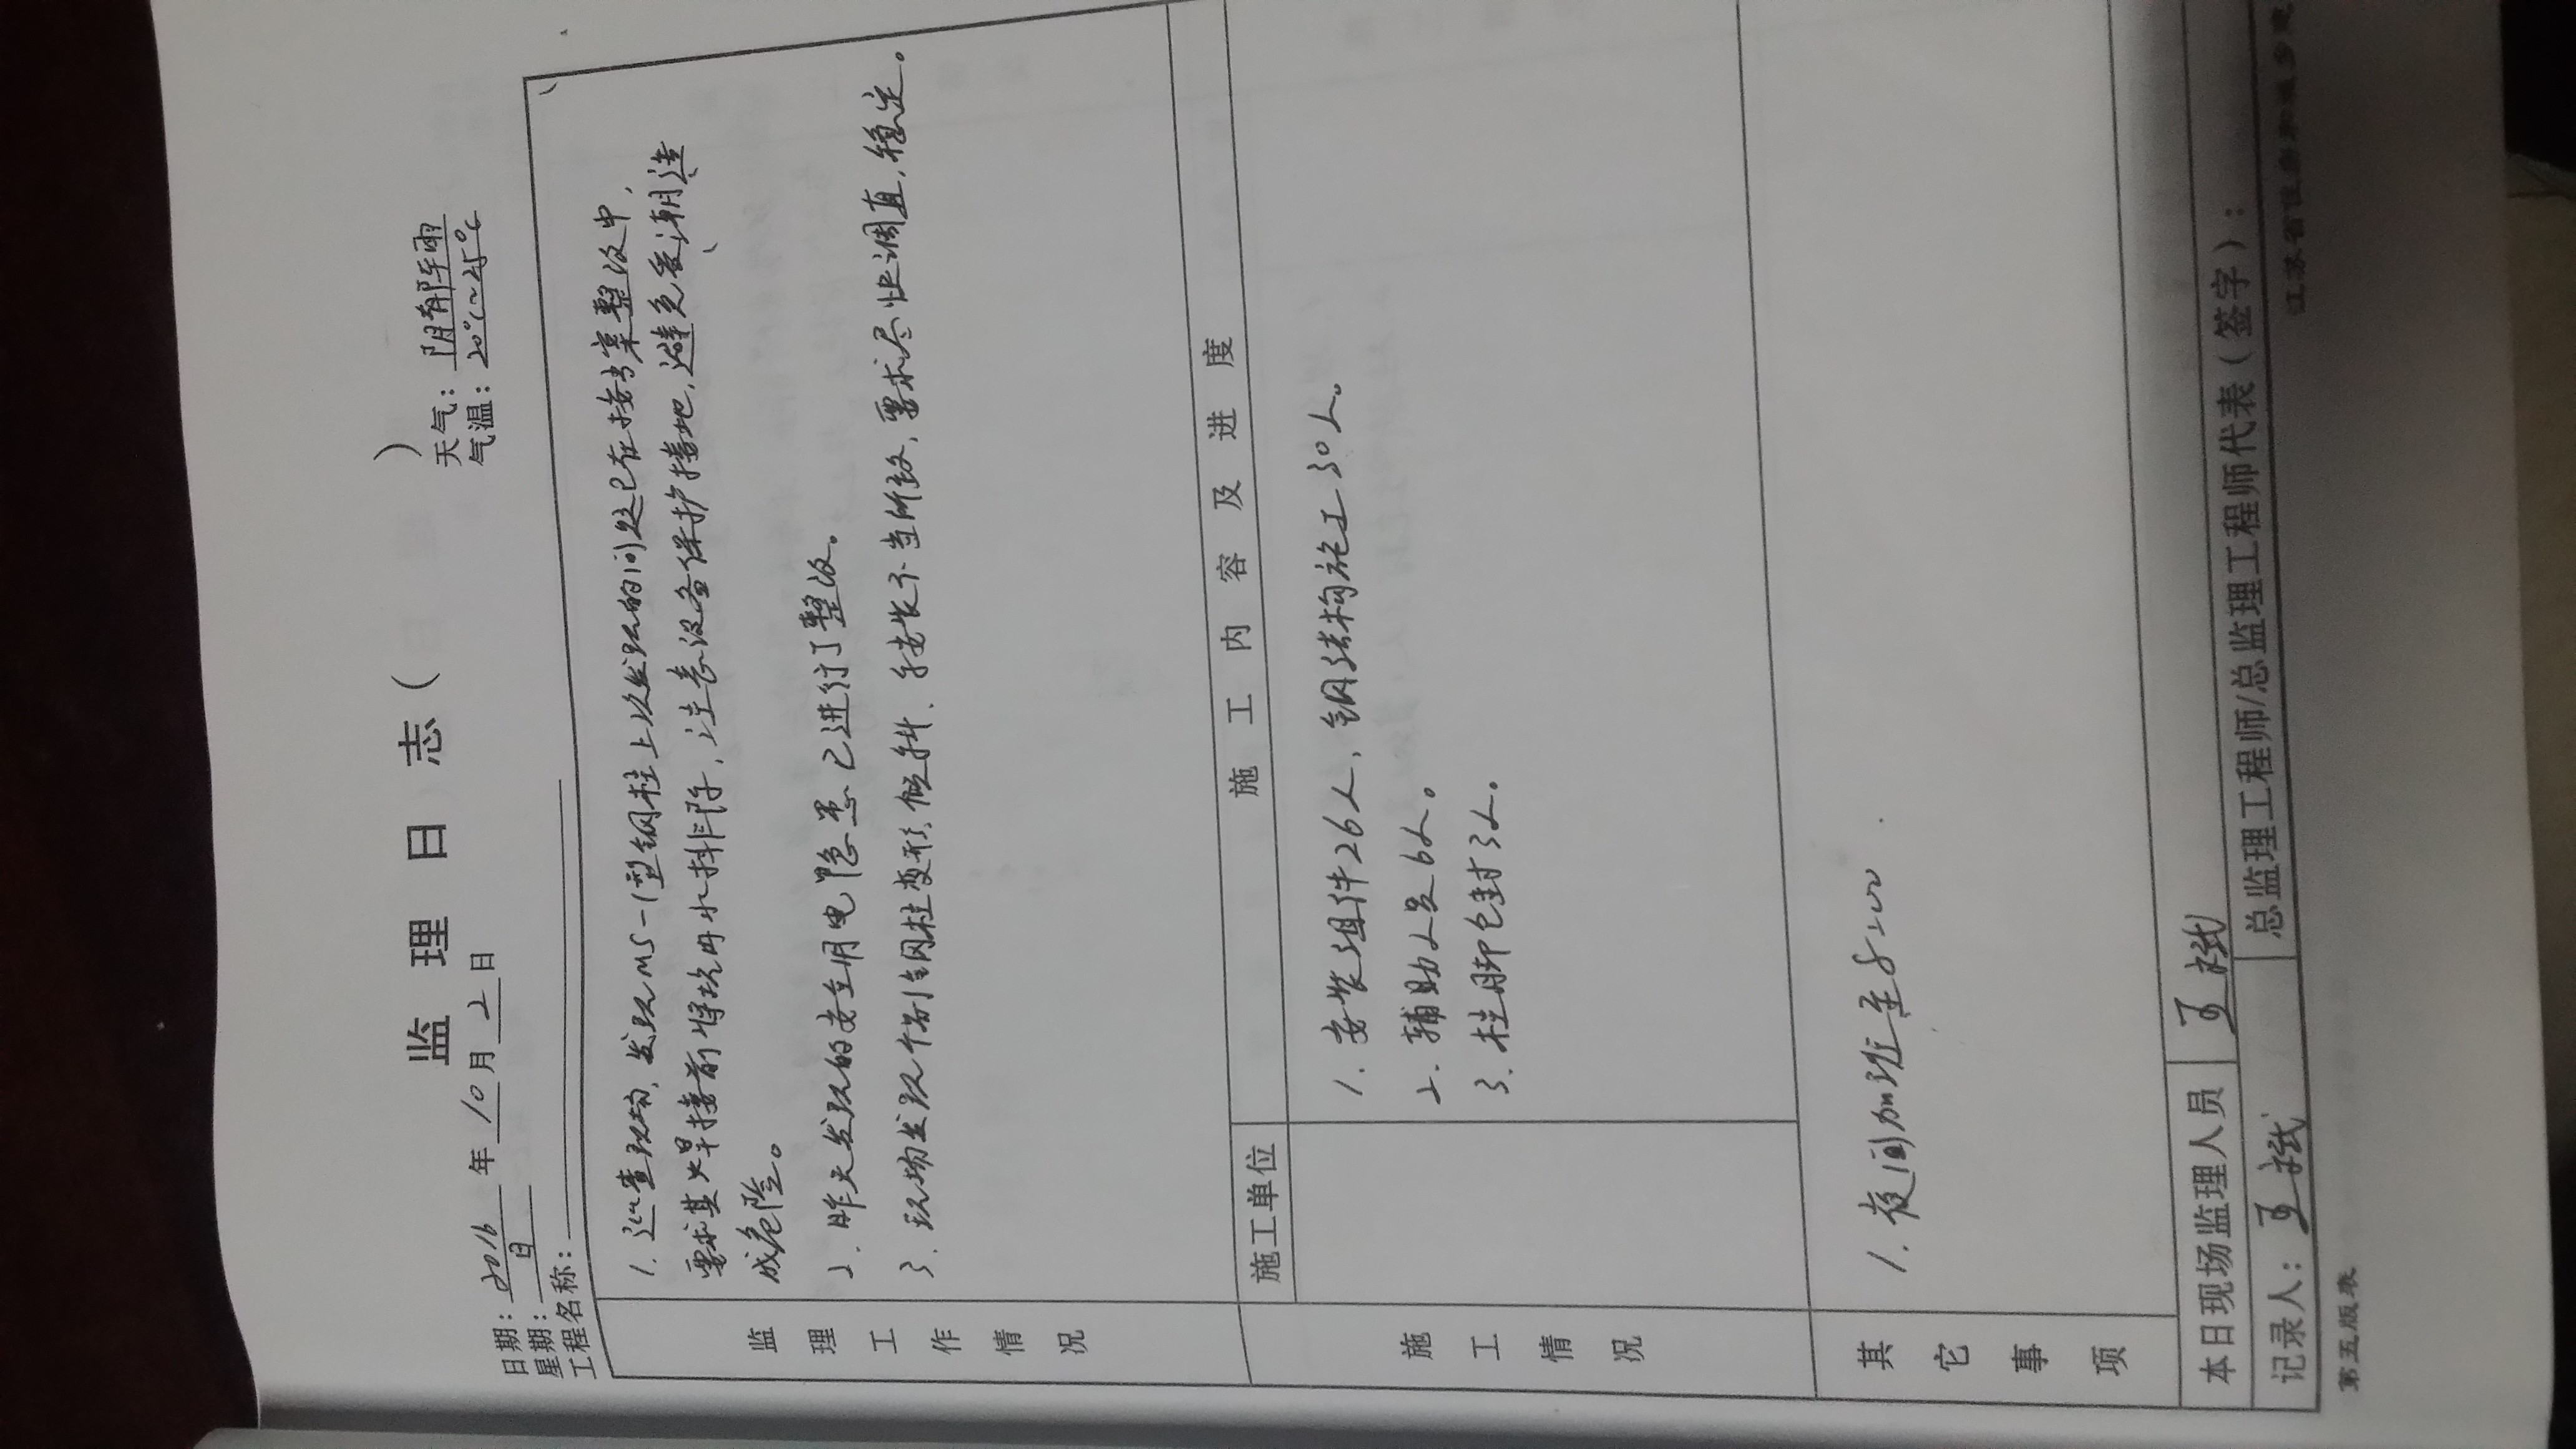 监理日志（ ）
日期：2016年10月2日 天气：阴有阵雨
星期：日 气温：20℃~25℃
工程名称：
监理工作情况
1. 巡查现场，发现MS-1型钢柱上次发现的问题已在按方案整改中，
要求其焊接前将坑内水排除，注意设备保护接地，避免受潮造
成危险。
2. 昨天发现的安全用电隐患已进行了整改。
3. 现场发现个别钢柱变形、倾斜、安装不当所致，要求尽快调直，稳定。
施工情况
施工单位 施工内容及进度
1. 安装组件26人，钢结构施工30人。
2. 辅助人员6人。
3. 柱脚包封3人。
其它事项
1. 夜间加班至8:00
本日现场监理人员 王斌
记录人：王斌 总监理工程师/总监理工程师代表（签字）：
第五版表 江苏省住房和城乡建